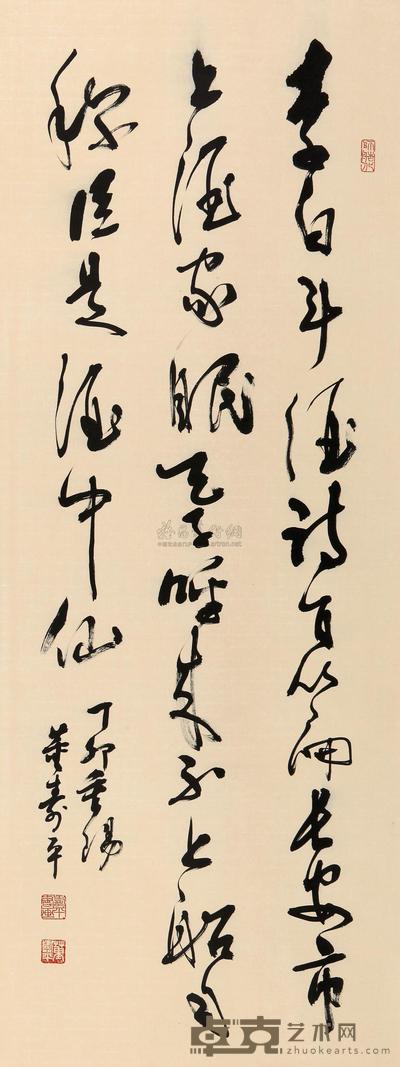 李白斗酒诗百篇长安市
上酒家眠天子呼来不上船自
称臣是酒中仙
丁卯重阳
董寿平
卓克艺术网
zhuokearts.com